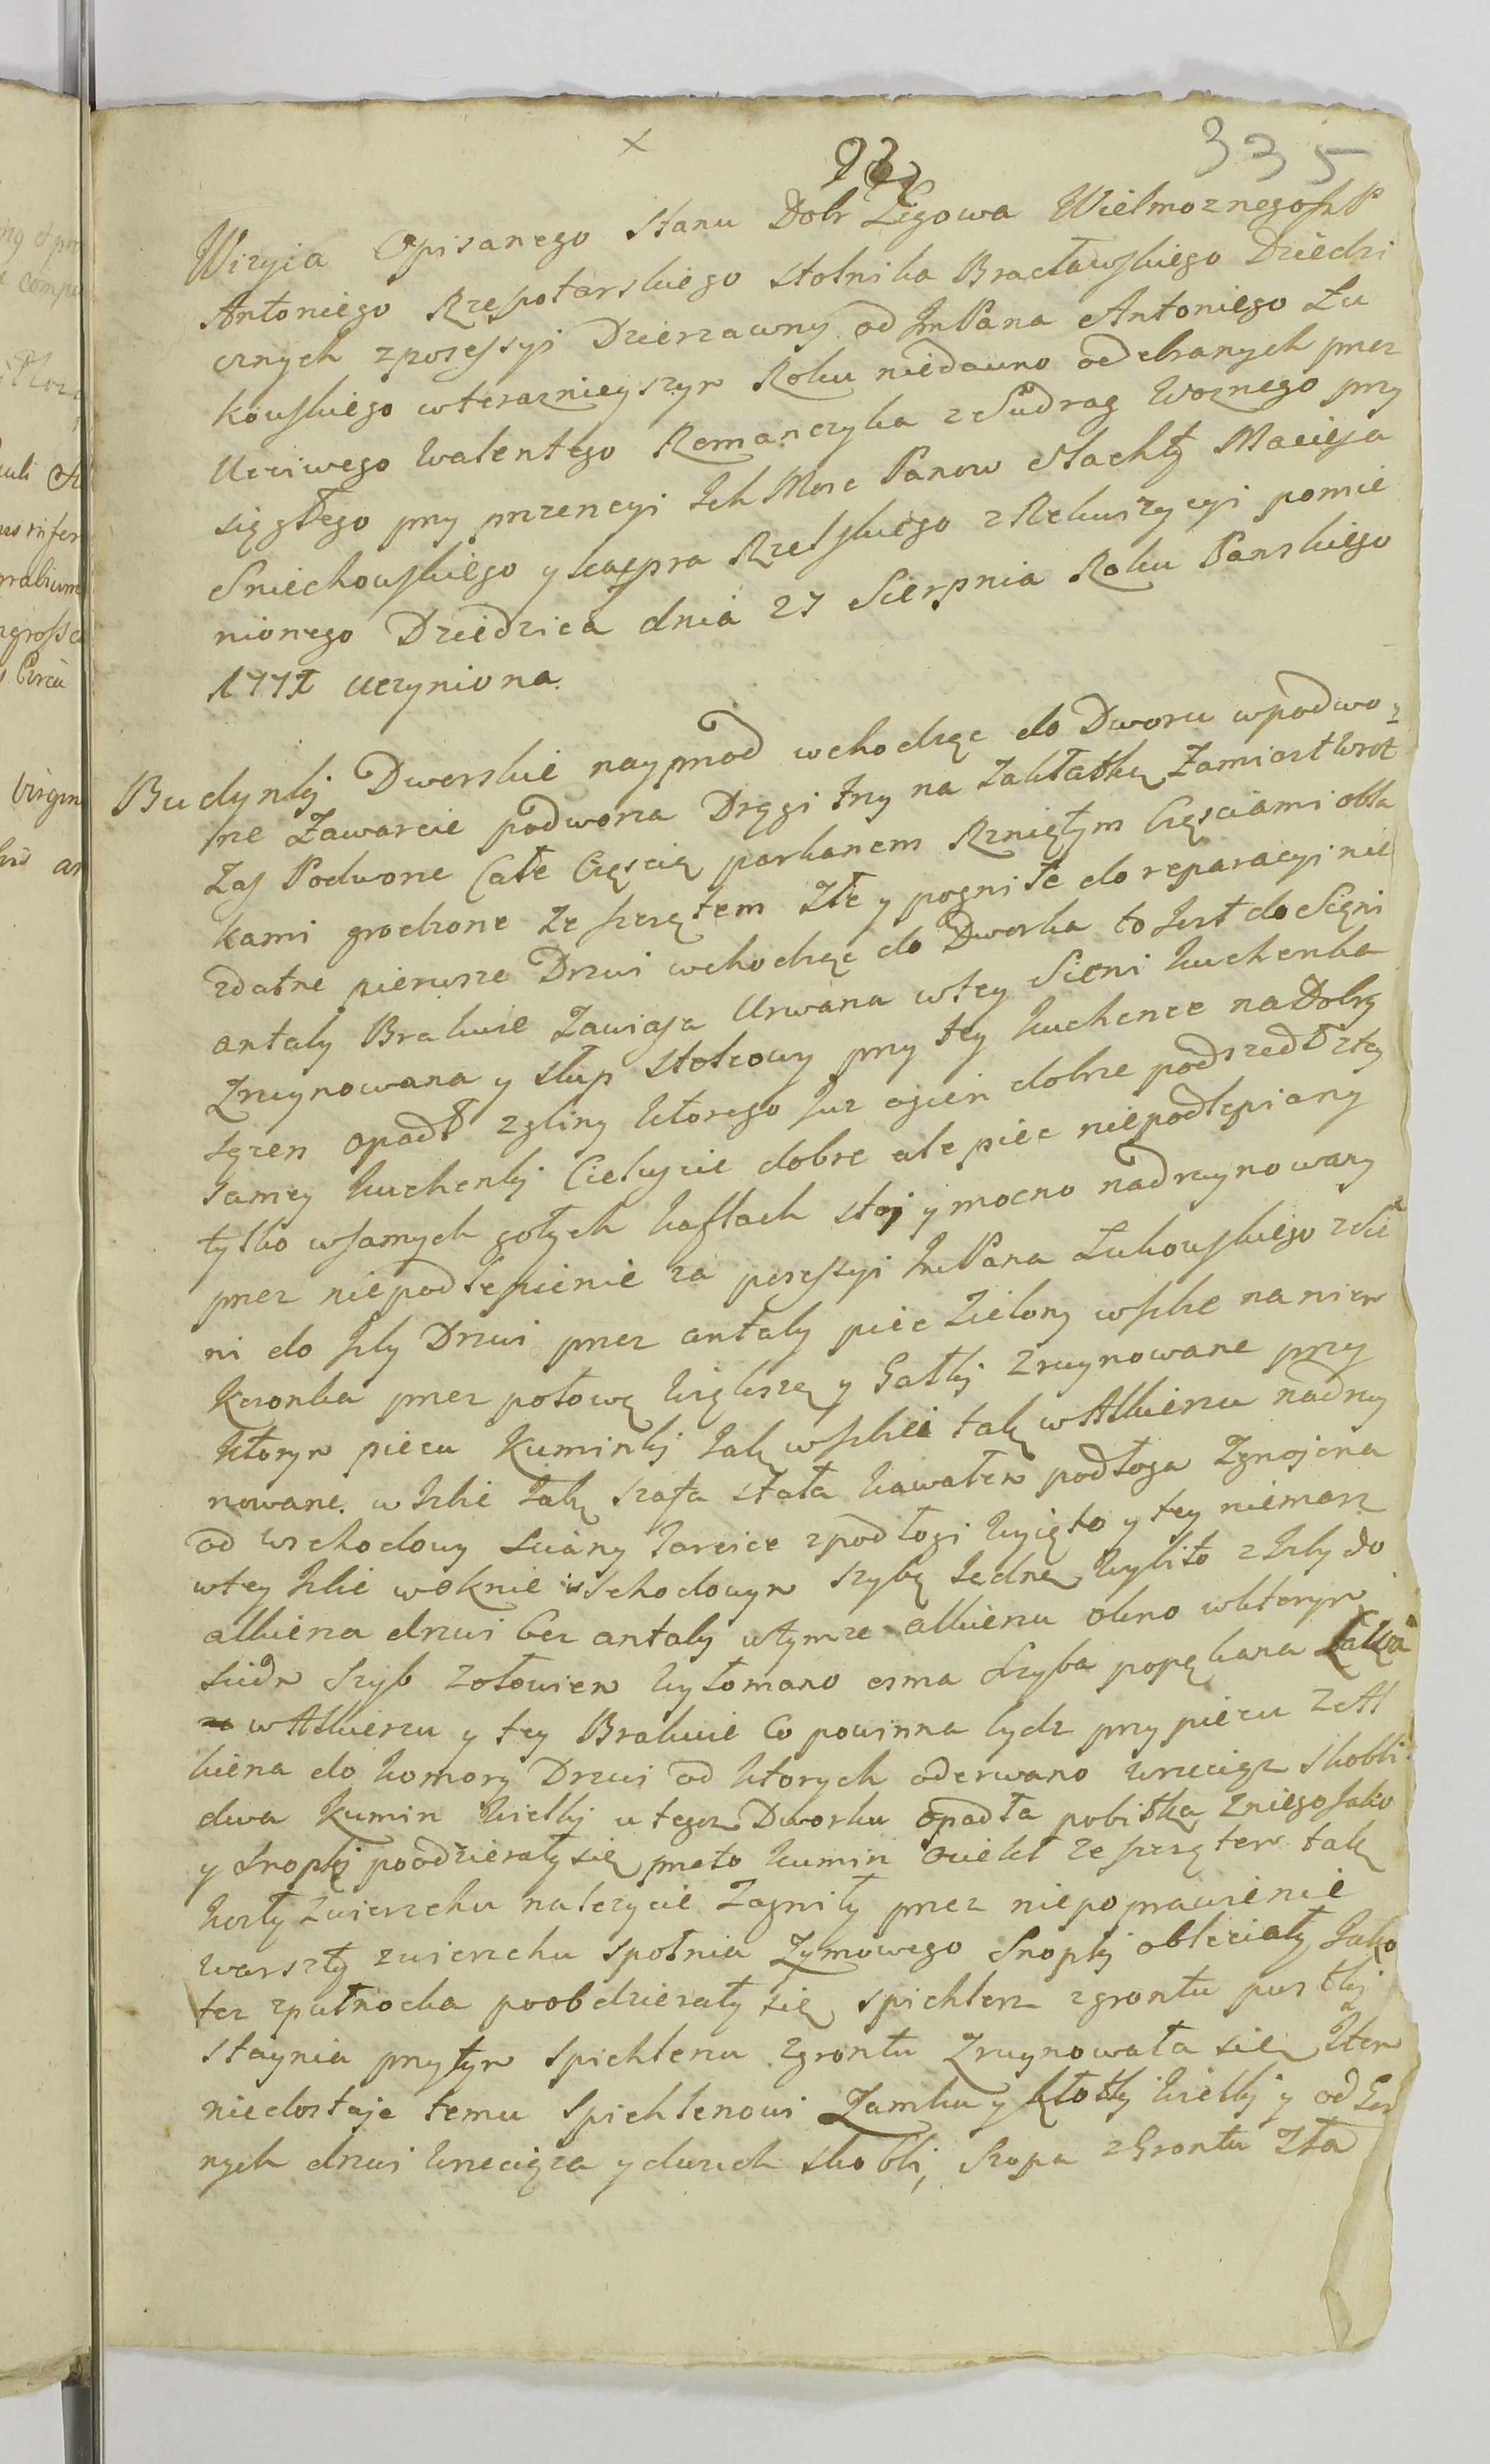 335
Wizyia Opisanego stanu Dobr Zegowa Wielmoznego JP
Antoniego Rzepotarskiego stolnika Bracławskiego Dziedzi
cznych z posessyi Dzierzawny od Jm Pana Antoniego Łu
kowskiego wterazniejszym Roku niedawno odebranych przez
Uczciwego Walentego Romanczyka z Sudrag Woznego przy
sięgłego przy przencyi Ich Mosc Panow Slachty Macieja
Sniechowskiego y Kaspra Rzelskiego z Rekwizycyi pomie
nionego Dziedzica dnia 27 Sierpnia Roku Panskiego
uczyniona.
Budynki Dworskie nayprzod wchodząc do Dworu wpodwo¬
rze Zawarcie podworza Drągi trzy na Zakłatkę Zamiast wrot
Zas Podworze Całe Częscią parkanem Rzniętym Częsciami obła
kami grodzone ze szczętem Złe y pogniłe do reparacyi nie
zdatne pierwsze Drzwi wchodząc do Dworka to Jest do Sięni
antaby Brakuie Zawiasa Urwana wtey Sieni kuchenka
Zruynowana y słup stolcowy przy tey kuchence na Dobry
sązen opadł z gliny ktorego Juz ogień dobrze podszedł z tey
samey kuchenki Cieluscie dobre ale piec niepodlepiany
tylko wsamych gołych kaflach stoj y mocno nadruynowany
przez niepodlepienie za posessyi Jm Pana Łukowskiego z Sie
ni do Jzby Drzwi przez antaby piec Zielony wJzbie na nim
Koronka przez połowę większą y Gałki zruynowane przy
ktorym piecu Kuminki Jak w Jzbie tak w Alkierzu nadruy
nowane. w Jzbie Jak szafa stała kawałem podłoga Zgnojona
od Wschodowy sciany Tarcice z podłogi wyięto y tey niemasz
wtey Jzbie woknie wschodowym szybę Jednę wybito z Jzby do
alkierza drzwi bez antaby wtymze alkierzu okno wktorym
siedm szyb z ołowiem wyłomano osma szyba popękana Ławka
w Alkierzu y tey Brakuie Co powinna bydz przy piecu z Al
kierza do komory Drzwi od ktorych oderwano wrzeciądz skobli
dwa Kumin wielki u tegoz Dworku opadła pobitka z niego Jako
y snopki poodzierały się przeto kumin ze szczętem tak
kozły zwierzchu nalezycie Zagniły przez niepoprawienie
warszty zwierzchu społnia Zymowego Snopki obleciały Jako
tez zpułnocka poobdzierały się spichlerz zgrontu pustki
staynia przytym spichlerzu zgrontu Zruynowała się Item
niedostaje temu spichlerzowi Zamku y kłotki wielki y od
nych drzwi wrzeciąza y dwuch skobli, szopa z Grontu Zła